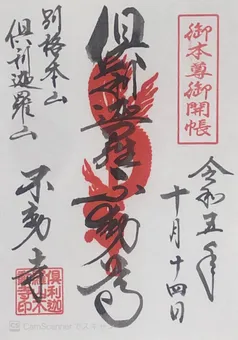 御本尊御開帳
令和五年
十月十四日
倶利迦羅不動尊
別格本山
倶利迦羅山
不動寺
CamScanner